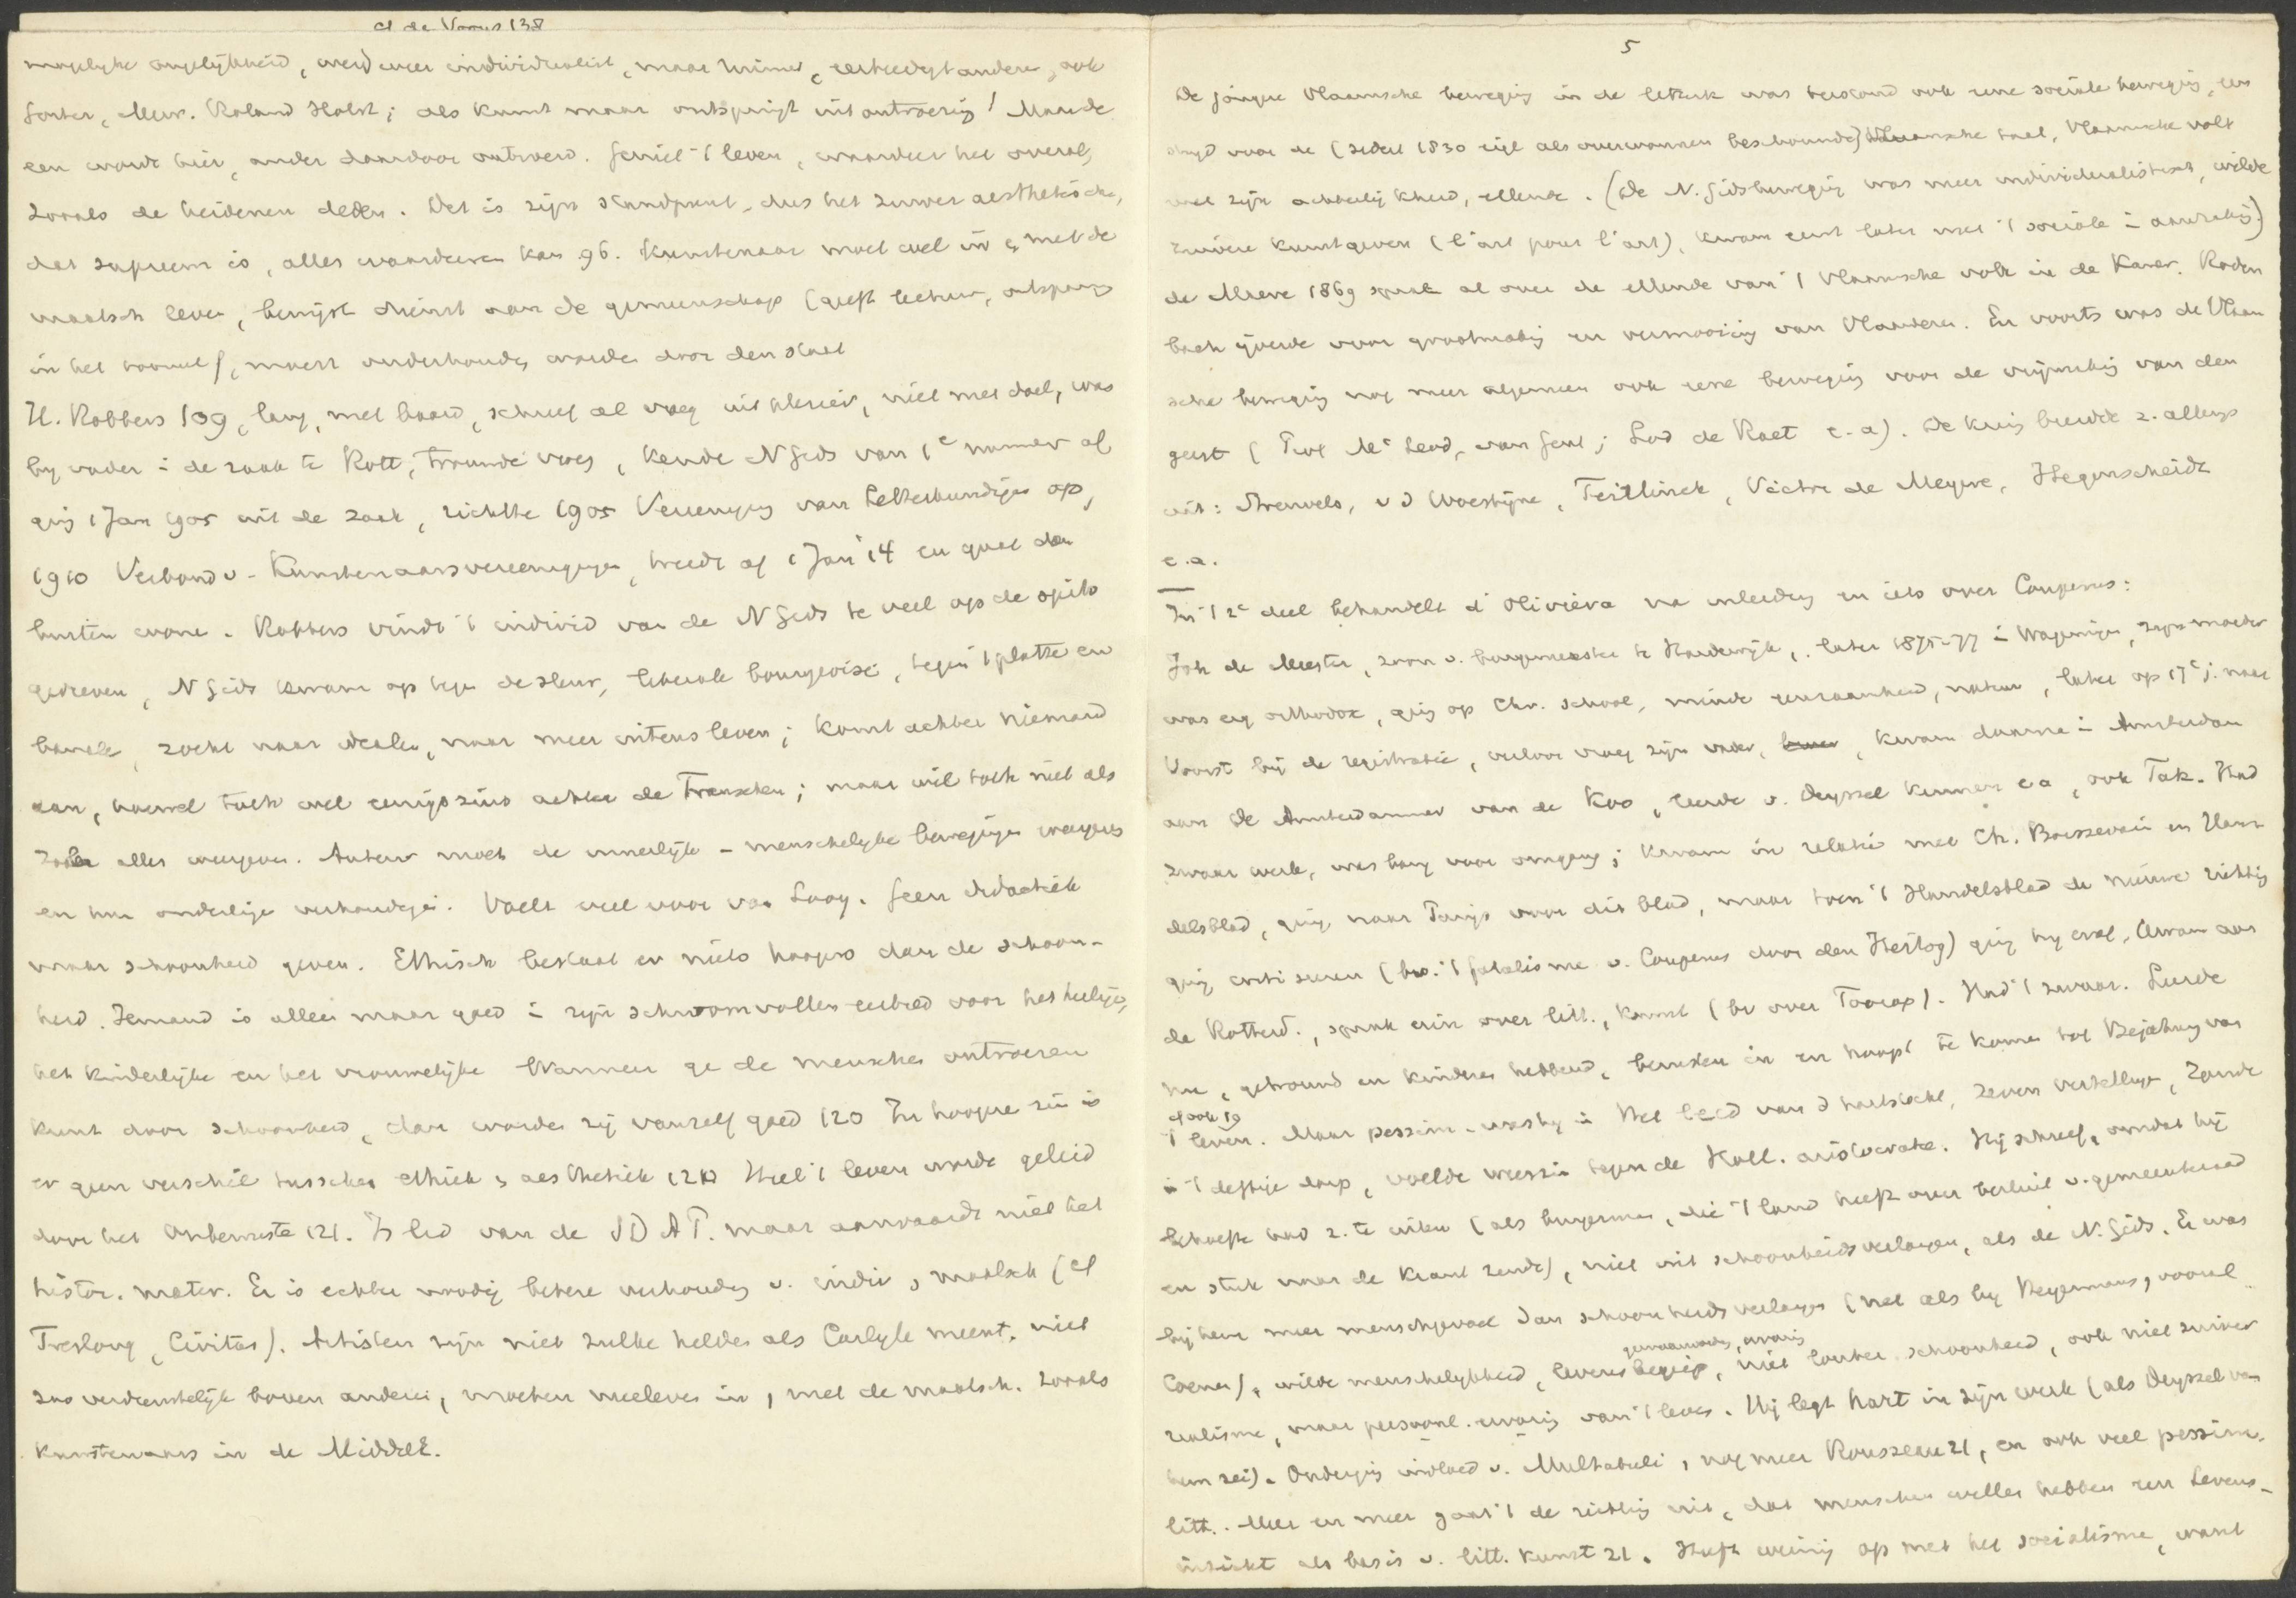 cf de Vooys 138
mogelyke ongelijkheid, werd weer individualist, maar ruimer, eerbiedigt anderen, ook
Gorter, Mevr. Roland Holst; als kunst maar ontspringt uit ontroering! Maar de
een wordt hier, ander daardoor ontroerd. Geniet 't leven, waardeer het overal,
zooals de heidenen deden. Dat is zijn standpunt, dus het zuiver aesthetische,
dat supreem is, alles waardeeren kan 96. Kunstenaar moet wel in & met de
maatsch leven, bewijst dienst aan de gemeenschap (geeft lectuur, ontspang
in het tooneel), moest onderhouden worden door den staat
H. Robbers 109, lang, met baard, schreef al vroeg uit plezier, niet met doel, was
by vader i de zaak te Rott, trouwde vroeg, kende N Gids van 1e nummer af
ging 1 Jan 1905 uit de zaak, richtte 1905 Vereeniging van Letterkundigen op,
1910 Verbond v. Kunstenaarsvereenigingen, treedt af 1 Jan '14 en gaat dan
buiten wonen. Robbers vindt 't individ van de N Gids te veel op de spits
gedreven, N Gids kwam op tegen de sleur, liberale bourgeoisie, tegen 't platte en
banale, zocht naar idealen, naar meer intens leven; komt achter niemand
aan, hoewel toch wel eenigszins achter de Franschen; maar wil toch niet als
Zola alles weergeven. Auteur moet de innerlijk-menschelyke bewegingen weergeven
en hun onderlinge verhoudingen. Voelt veel voor van Looy. Geen didactiek
maar schoonheid geven. Ethisch bestaat er niets hoogers dan de schoon-
heid. Iemand is alleen maar goed i zijn schroomvollen eerbied voor het heilige,
het kinderlijke en het vrouwelijke Wanneer ge de menschen ontroeren
kunt door schoonheid, dan worden zij vanzelf goed 120 In hoogere zin is
er geen verschil tusschen ethiek & aesthetiek 120 Heel 't leven wordt geleid
door het Onbewuste 121. Is lid van de SDAP. maar aanvaardt niet het
histor. mater. Er is echter noodig betere verhouding v. indiv & maatsch (cf
Treslong, Civitas). Artisten zijn niet zulke helden als Carlyle meent, niet
zoo verdienstelijk boven anderen, moeten meeleven in, met de maatsch. zooals
kunstenaars in de MiddelE.
5
De jongere Vlaamsche beweging in de letterk was bewust ook eene sociale beweging, een
strijd voor de (sedert 1830 als overwonnen beschouwde) Vlaamsche taal, Vlaamsche volk
met zijn achterlijkheid, ellende. (De N. Gidsbeweging was meer individualistisch, wilde
zuivere kunst geven (l'art pour l'art), kwam eerst later met 't sociale i aanraking)
de Maere 1869 sprak al over de ellende van 't Vlaamsche volk in de Kamer. Roden
bach ijverde voor grootmaking en vermooiing van Vlaanderen. En voorts was de Vlaam
sche beweging nog meer algemeen ook eene beweging voor de vrijmaking van den
geest (Prof Mc Leod, van Gent; Lod de Raet e.a). De kring breidde z. allengs
uit: Streuvels, v d Woestijne, Teirlinck, Victor de Meyere, Hegenscheidt
e.a.
In 't 2e deel behandelt d'Oliviera na inleiding en iets over Couperus:
Joh de Meester, zoon v. burgemeester te Harderwijk, later 1875-77 i Wageningen, zijn moeder
was erg orthodox, ging op Chr. school, minde eenzaamheid, natuur, later op 17e j. naar
Voorst bij de registratie, verloor vroeg zijn vader, kwam daarna i Amsterdam
aan De Amsterdammer van de Koo, leerde v. Deyssel kennen e a, ook Tak. Had
zwaar werk, was bang voor omgang; kwam in relatie met Ch. Boissevain en Han-
delsblad, ging naar Parijs voor dit blad, maar toen 't Handelsblad de nieuwe richting
ging critiseeren (bv. 't fatalisme v. Couperus door den Hertog) ging hy eraf, kwam aan
de Rotterd., sprak erin over litt., kunst (bv over Toorop). Had 't zwaar. Leerde
nu, getrouwd en kinderen hebbend, berusten in en hoopt te komen tot Bejahung van
't leven. Maar pessim. was hy i Het leed van d hartstocht, Zeven vertellingen, Zonde
i 't deftige dorp, voelde weerzin tegen de Holl. aristocratie. Hij schreef, omdat hij
behoefte had z. te uiten (als burgerman, die 't land heeft over besluit v. gemeenteraad
en stuk naar de krant zendt), niet uit schoonheidsverlangen, als de N. Gids. Er was
bij hem meer menschgevoel dan schoonheidsverlangen (net als by Heyermans, vooral
Coenen), wilde menschelykheid, levensbegrip, niet louter schoonheid, ook niet zuiver
realisme, maar persoonl. ervaring van 't leven. Hij legt hart in zijn werk (als Deyssel van
hem zei). Onderging invloed v. Multatuli, nog meer Rousseau 21, en ook veel pessim.
litt. Meer en meer gaat 't de richting uit, dat menschen willen hebben een levens-
inzicht als basis v. litt. kunst 21. Heeft weinig op met het socialisme, want